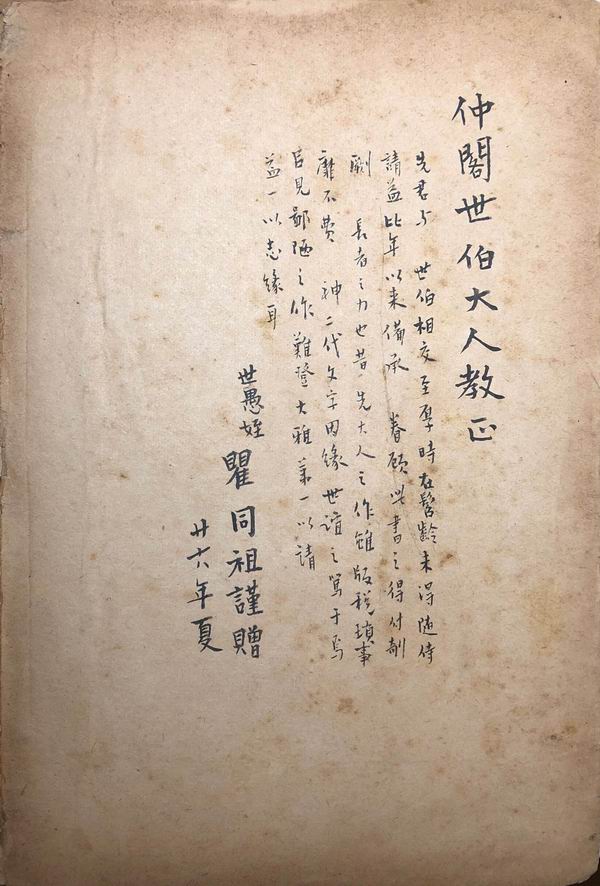 仲閣世伯大人教正
先君与 世伯相交至厚時在髫齡未得隨侍
請益比年以來備承 眷顧此書之得付剞
劂 長者之力也昔 先大人之作雖版稅瑣事
靡不費 神二代文字因緣世誼之篤于焉
益見鄙陋之作難登大雅第一以請
益一以志緣耳
世愚姪
瞿同祖謹贈
廿六年夏